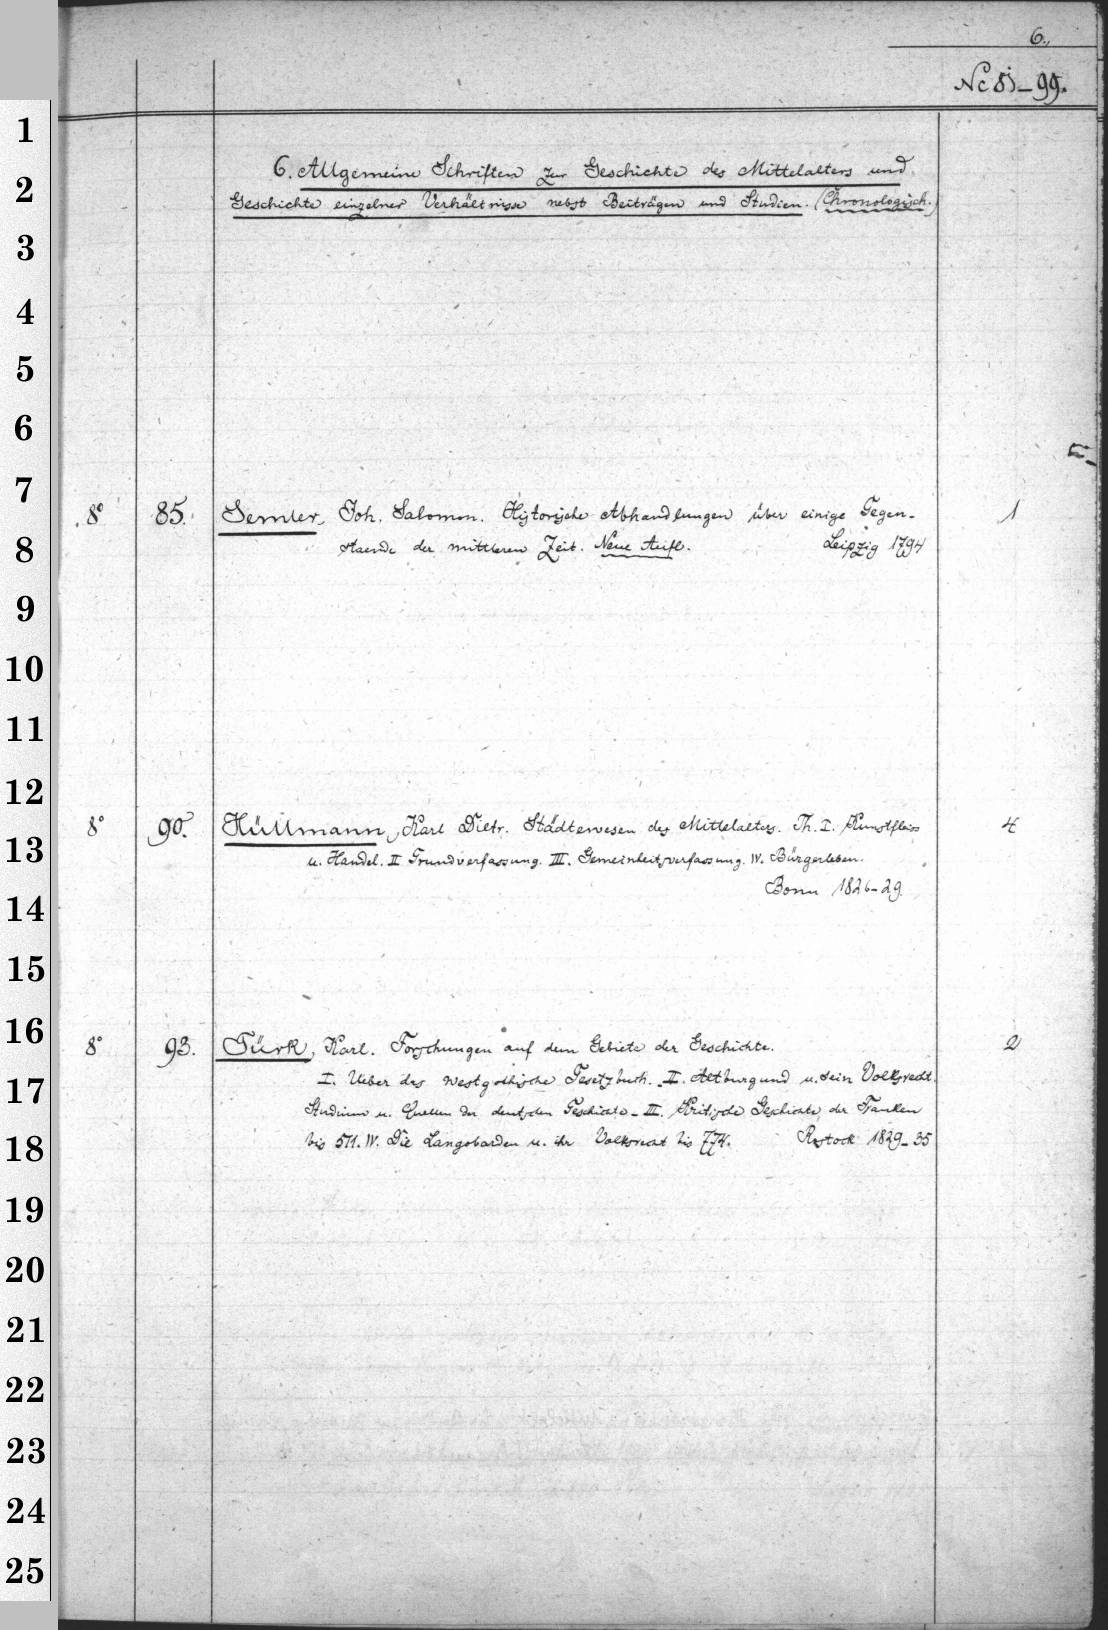 6.
Nc 85-99.
6. Allgemeine Schriften zur Geschichte des Mittelalters und
Geschichte einzelner Verhältnisse nebst Beiträgen und Studien. (Chronologisch.)
1
2
3
4
5
6
7
8
9
10
11
12
13
14
15
16
17
18
19
20
21
22
23
24
25
8° 85. Semler, Joh. Salomon. Historische Abhandlungen über einige Gegen- 1
staende der mittleren Zeit. Neue Aufl. Leipzig 1794
8° 90. Hüllmann, Karl Dietr. Städtewesen des Mittelalters. Th. I. Kunstfleiss 4
u. Handel. II Grundverfassung. III. Gemeinheitsverfassung. IV. Bürgerleben.
Bonn 1826-29.
8° 93. Türk, Karl. Forschungen auf dem Gebiete der Geschichte. 2
I. Ueber das westgothische Gesetzbuch. II. Altburgund u. sein Volksrecht.
Studium u. Quellen der deutschen Geschichte - III. Kritische Geschichte der Franken
bis 511. IV. Die Langobarden u. ihr Volksrecht bis 774. Rostock 1829-35